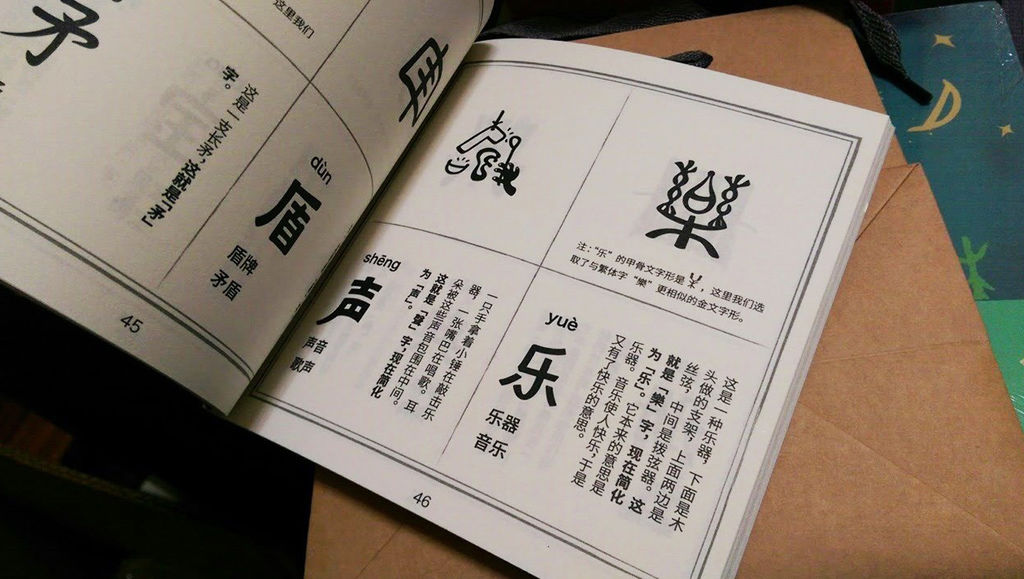 这里我们
矛
这是一支长矛，这就是「矛」
字。
dùn
盾
盾牌
矛盾
45
注：“乐”的甲骨文字形是 ，这里我们选
取了与繁体字“樂”更相似的金文字形。
shēng
声
声音
歌声
一只手拿着小锤在敲击乐
器，一张嘴巴在唱歌。耳
朵被这些声音包围在中间。
这就是「聲」字，现在简化
为「声」。
yuè
乐
乐器
音乐
这是一种乐器，下面是木
头做的支架，上面两边是
丝弦，中间是拨弦器。这
就是「樂」字，现在简化
为「乐」。它本来的意思是
乐器。音乐使人快乐，于是
又有了快乐的意思。
46